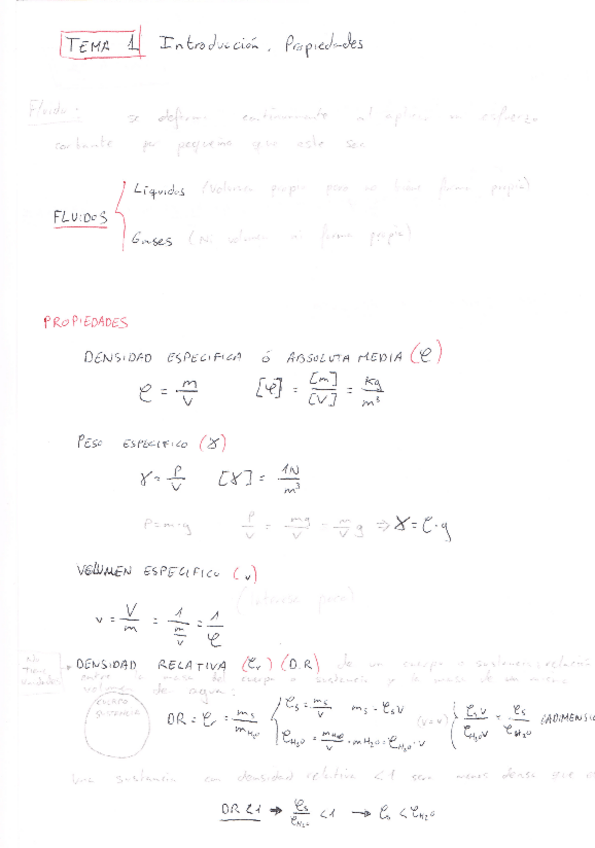 TEMA 1 Introducción. Propiedades
Fluido: se deforma continuamente al aplicar un esfuerzo
cortante por pequeño que este sea
FLUIDOS
Líquidos (Volumen propio pero no tiene forma propia)
Gases (Ni volumen ni forma propia)
PROPIEDADES
DENSIDAD ESPECIFICA Ó ABSOLUTA MEDIA (ρ)
ρ = m/V [ρ] = [m]/[V] = kg/m³
PESO ESPECIFICO (γ)
γ = P/V [γ] = 1N/m³
P=m·g P/V = mg/V = m/V g ⇒ γ = ρ·g
VOLUMEN ESPECIFICO (v)
v = V/m = 1/(m/V) = 1/ρ
No tiene unidades
DENSIDAD RELATIVA (ρr) (D.R) de un cuerpo o sustancia: relación
entre la masa del cuerpo o sustancia y la masa de un mismo
volumen de agua:
SUSTANCIA
DR = ρr = ms/mH₂O
ρs = ms/V ms = ρsV
ρH₂O = mH₂O/V · mH₂O = ρH₂O · V
(V=V) ρsV/ρH₂OV = ρs/ρH₂O (ADIMENSIO
Una sustancia con densidad relativa <1 será menos densa que e
DR<1 → ρs/ρH₂O <1 → ρs < ρH₂O